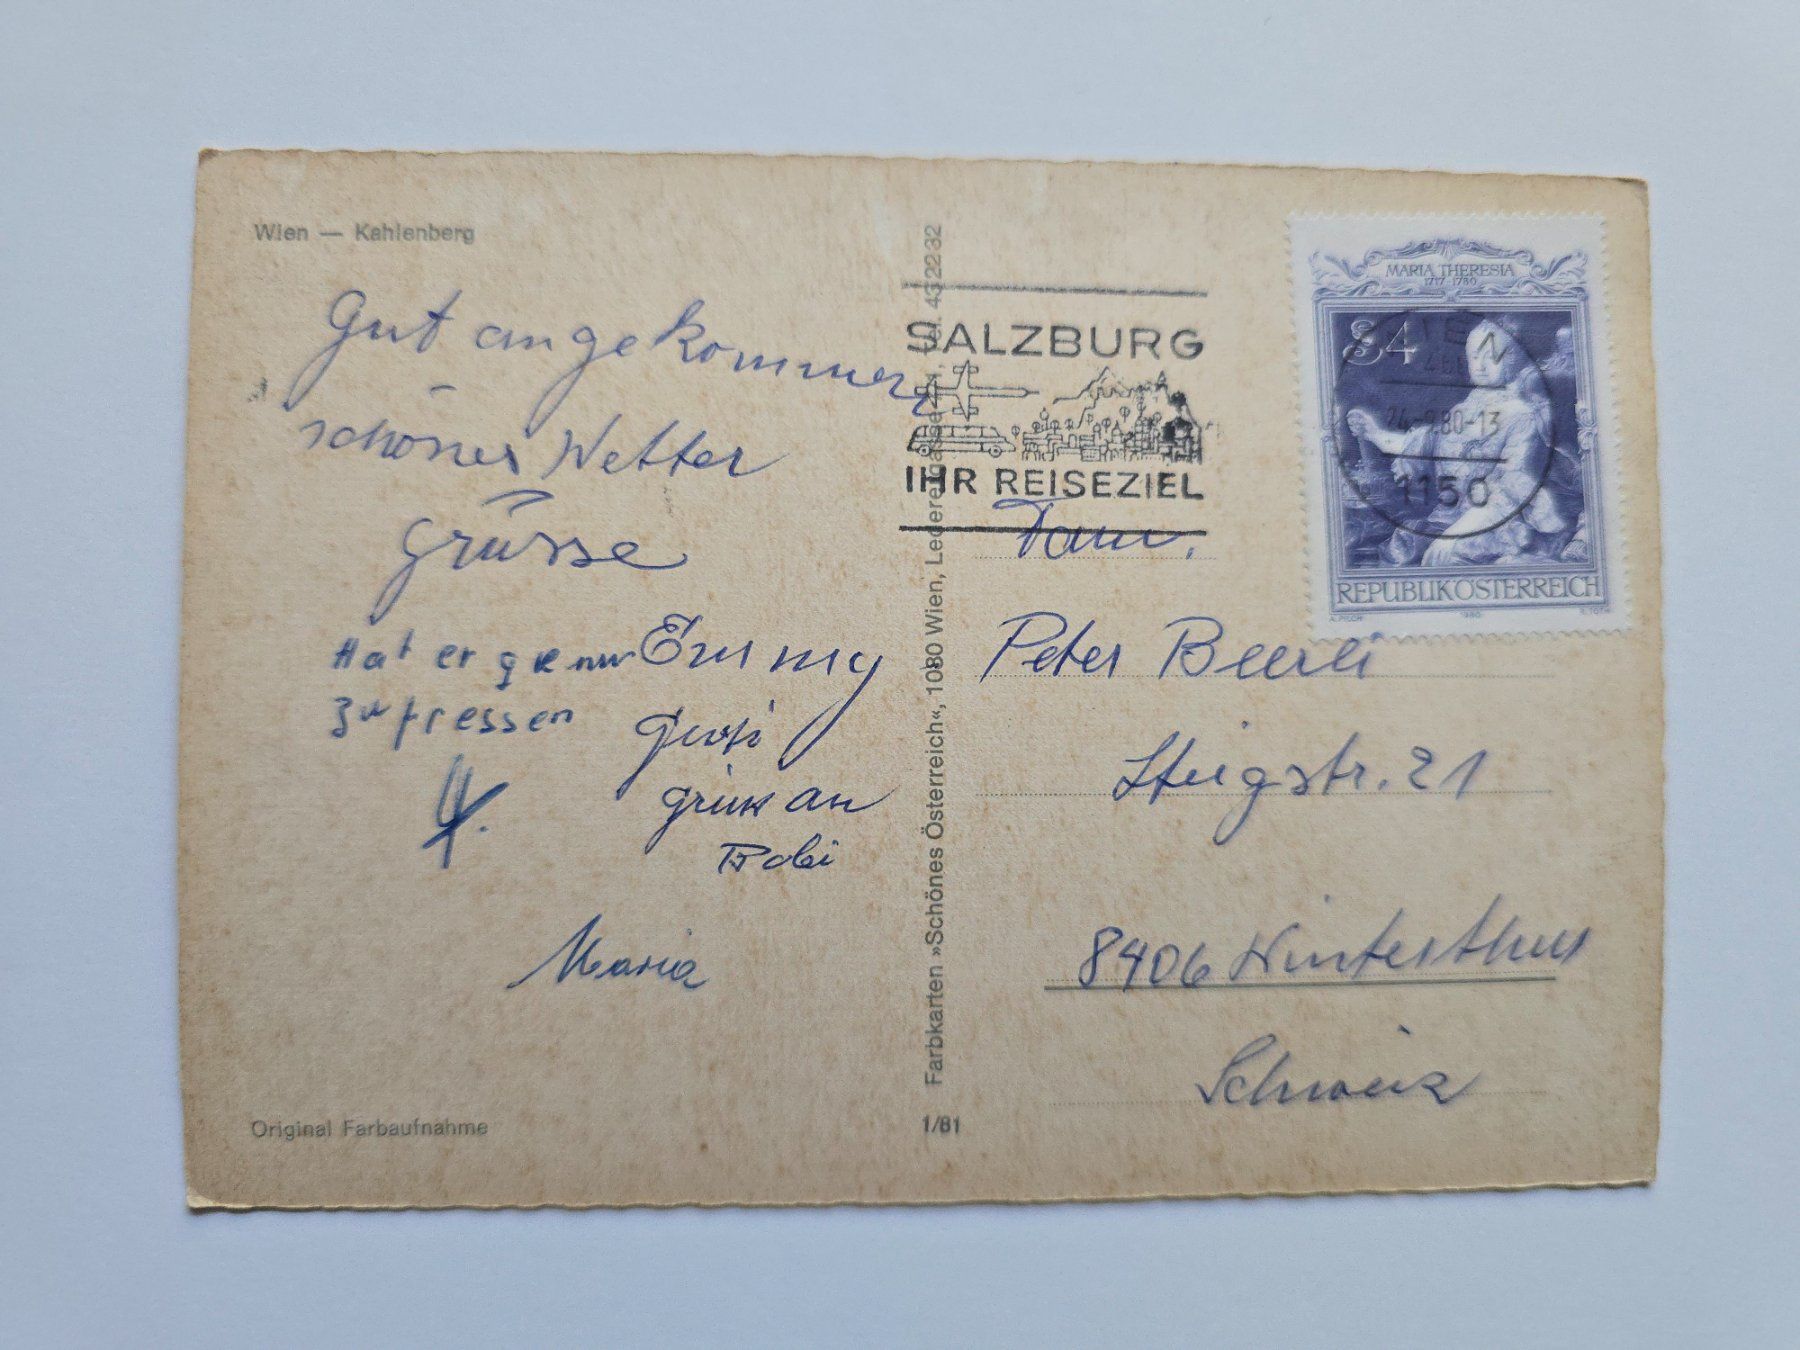 Wien — Kahlenberg
Gut angekommen
schönes Wetter
Grüsse
Emmy
Hat er genu
zu fressen
an
Robi
Maria
Original Farbaufnahme
Farbkarten »Schönes Österreich«, 1080 Wien, Lederergasse Tel. 432232
1/81
SALZBURG
IHR REISEZIEL
MARIA THERESIA
1717-1780
S 4
REPUBLIK ÖSTERREICH
1980
WIEN
24.-9.80-13
1150
Fam.
Peter Beerli
Steigstr. 21
8406 Winterthur
Schweiz